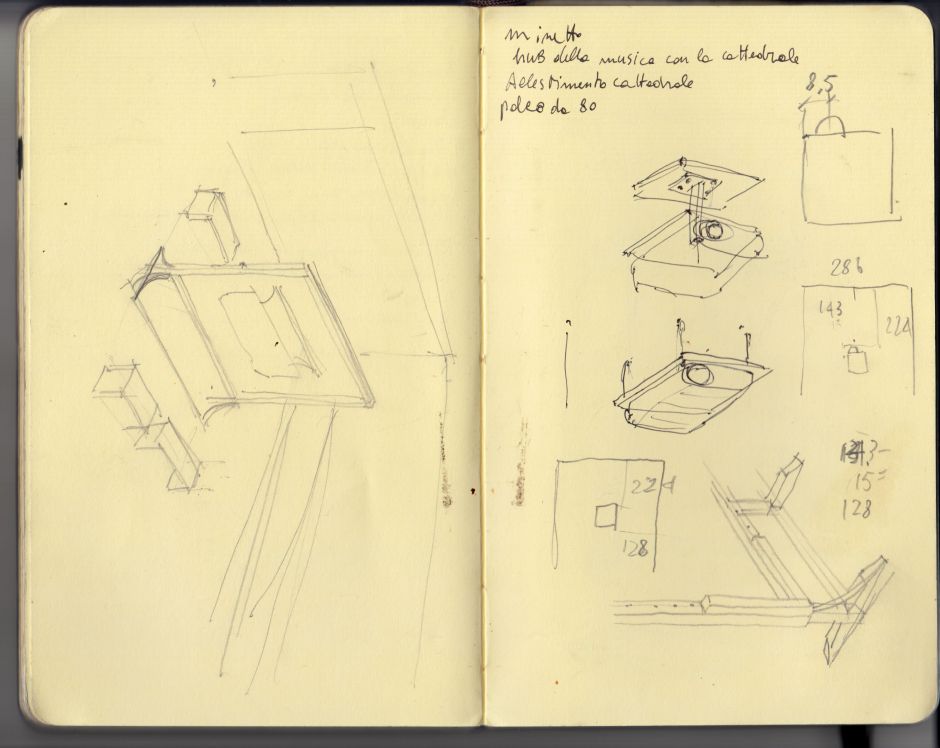 minetto
hub della musica con la cattedrale
Allestimento cattedrale
palco da 80
8,5
286
143
224
143-
15=
128
224
128